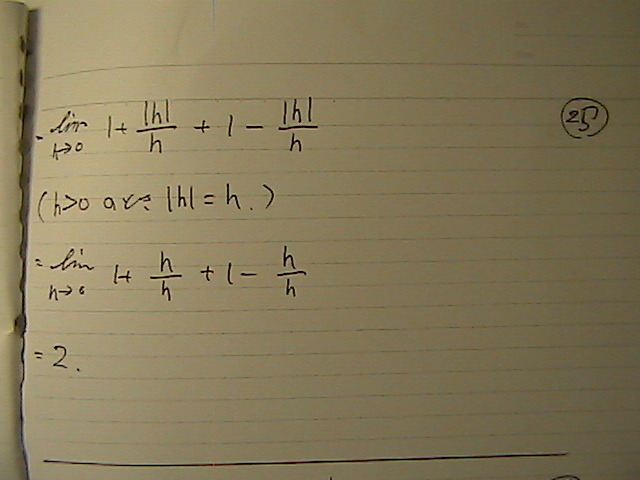 = lim h→0 1 + |h|/h + 1 - |h|/h
25
(h>0 |h| = h.)
= lim h→0 1 + h/h + 1 - h/h
= 2.